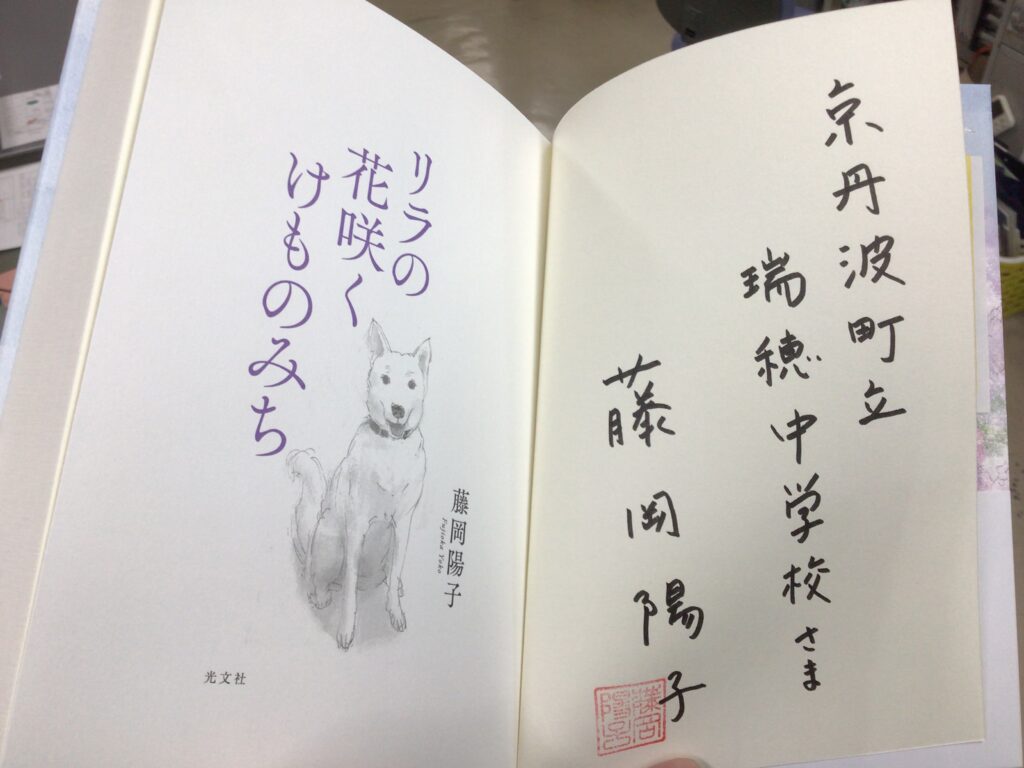 京丹波町立
瑞穂中学校さま
藤岡陽子
藤岡
陽子
リラの
花咲く
けものみち
藤岡陽子
Fujioka Yoko
光文社